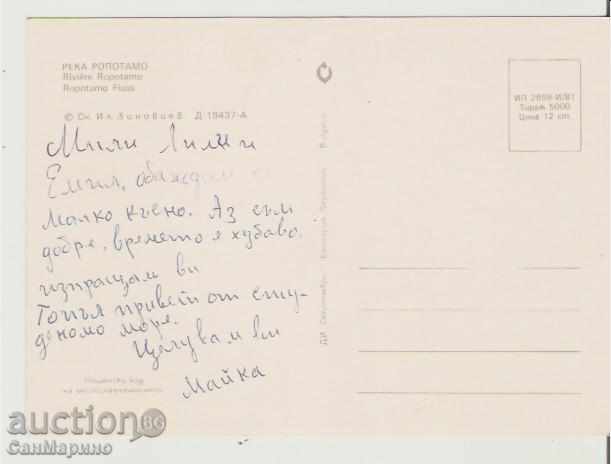 РЕКА РОПОТАМО
Rivière Ropotamo
Ropotamo Fluss
© Сн. Ил. Зиновиев Д 19437-А
Мили Лили и
Емил, обаждам се
малко късно. Аз съм
добре, времето е хубаво.
изпращам ви
Топъл привет от сту-
деното море.
Целувам ви
Майка
Пощенски код
ИП 2899-И/81
Тираж 5000
Цена 12 ст.
ДИ „Септември"
auction BG
СанМарино